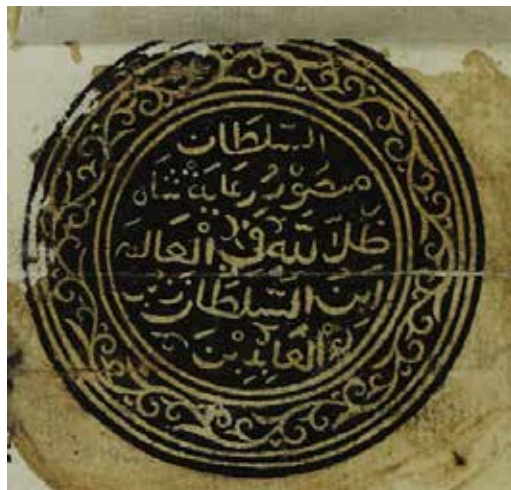 السلطان
منصور رعاية شاه
ظل الله في العالم
ابن السلطان زين
العابدين